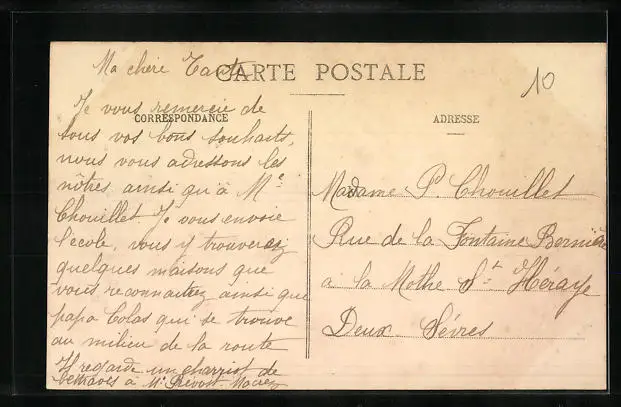 Ma chère Tante
CARTE POSTALE
10
CORRESPONDANCE
Je vous remercie de
tous vos bons souhaits,
nous vous adressons les
nôtres ainsi qu'à Mr
Chouillet. Je vous envoie
l'école, vous y trouverez
quelques maisons que
vous reconnaitrez ainsi que
papa Colas qui se trouve
au milieu de la route
Il regarde un charriot de
betteraves à Mr Prévost
ADRESSE
Madame P. Chouillet
Rue de la Fontaine Bernière
à la Mothe St Héraye
Deux Sèvres